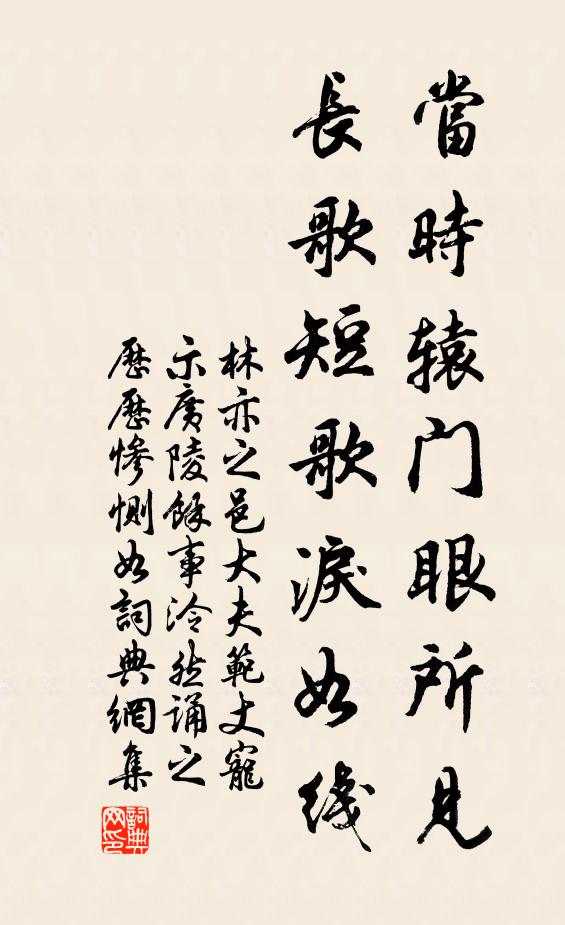 當時辕门眼所見
長歌短歌淚如线
林亦之邑大夫範丈寵
示廣陵餘事泠然誦之
歷歷慘惻如詞典網集
詞典网印